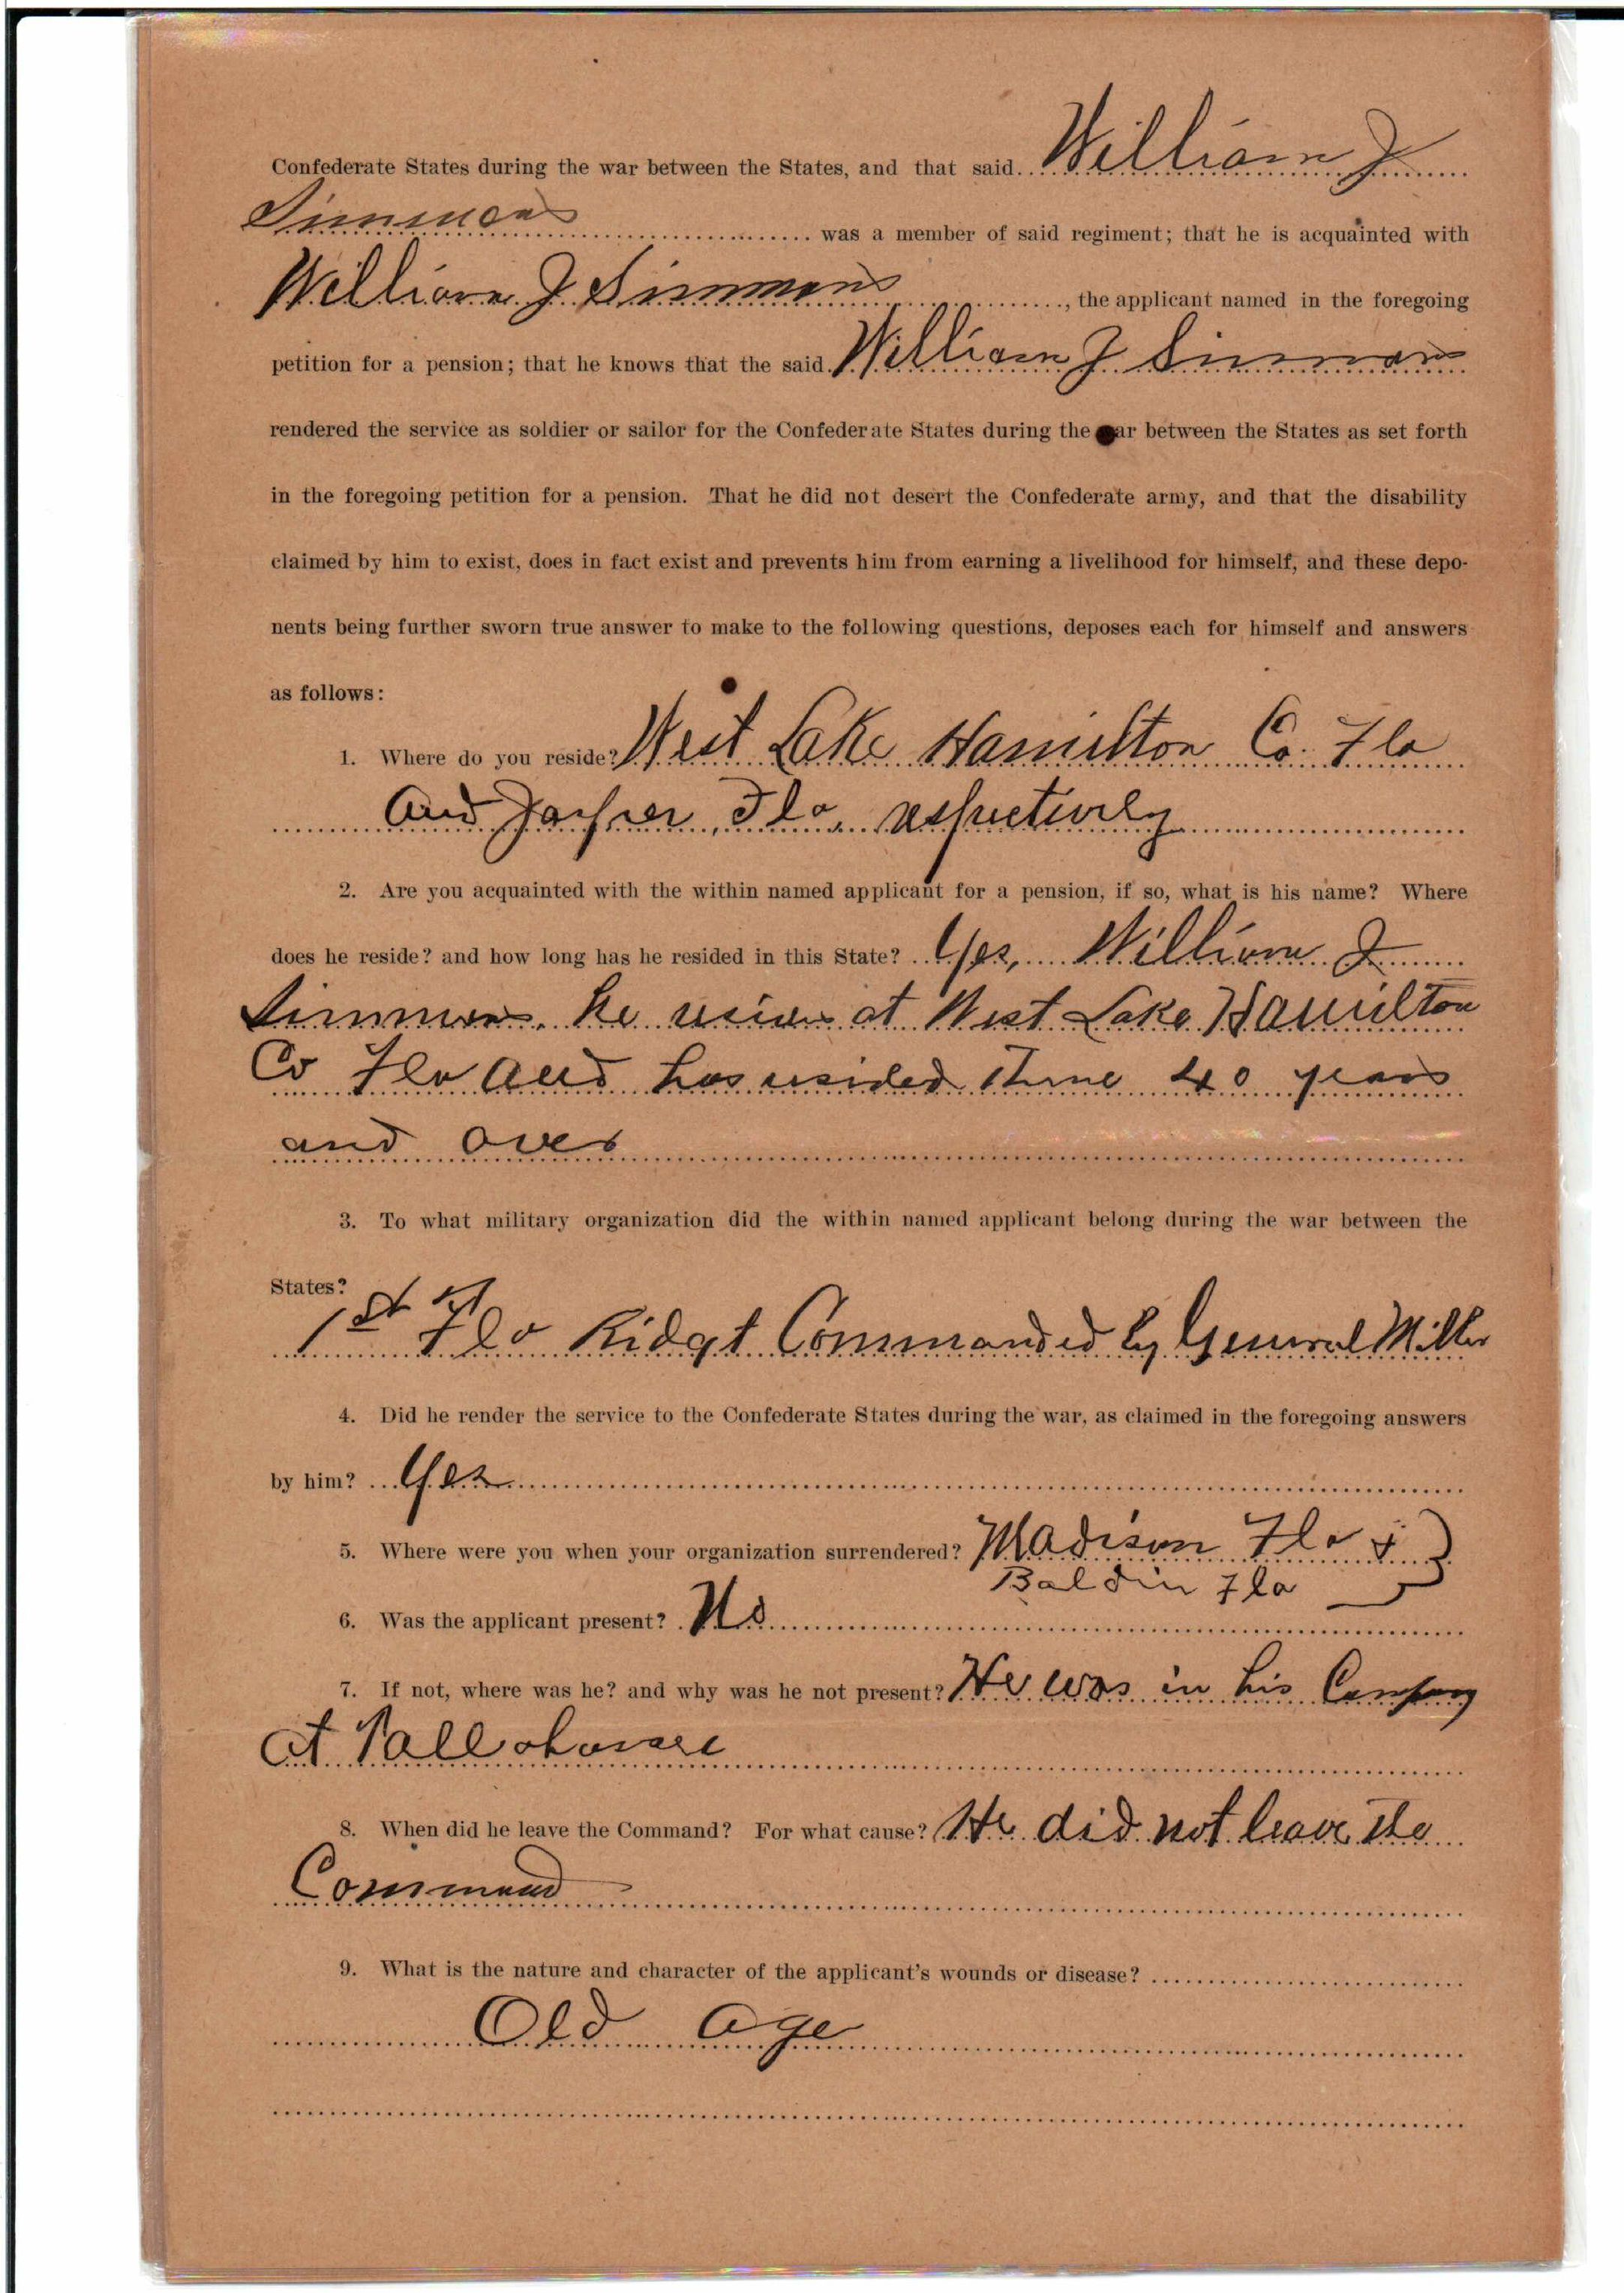 Confederate States during the war between the States, and that said William J
Simmons was a member of said regiment; that he is acquainted with
William J Simmons, the applicant named in the foregoing
petition for a pension; that he knows that the said William J Simmons
rendered the service as soldier or sailor for the Confederate States during the war between the States as set forth
in the foregoing petition for a pension. That he did not desert the Confederate army, and that the disability
claimed by him to exist, does in fact exist and prevents him from earning a livelihood for himself, and these depo-
nents being further sworn true answer to make to the following questions, deposes each for himself and answers
as follows:
1. Where do you reside? West Lake Hamilton Co. Fla
And Jasper, Fla, respectively
2. Are you acquainted with the within named applicant for a pension, if so, what is his name? Where
does he reside? and how long has he resided in this State? Yes, William J
Simmons. he resides at West Lake Hamilton
Co Fla and has resided there 40 years
and over
3. To what military organization did the within named applicant belong during the war between the
States?
1st Fla Ridgt Commanded by General Miller
4. Did he render the service to the Confederate States during the war, as claimed in the foregoing answers
by him? Yes
5. Where were you when your organization surrendered? Madison Fla &
Baldin Fla
6. Was the applicant present? No
7. If not, where was he? and why was he not present? He was in his Company
at Tallahassee
8. When did he leave the Command? For what cause? He did not leave the
Command
9. What is the nature and character of the applicant's wounds or disease?
Old age